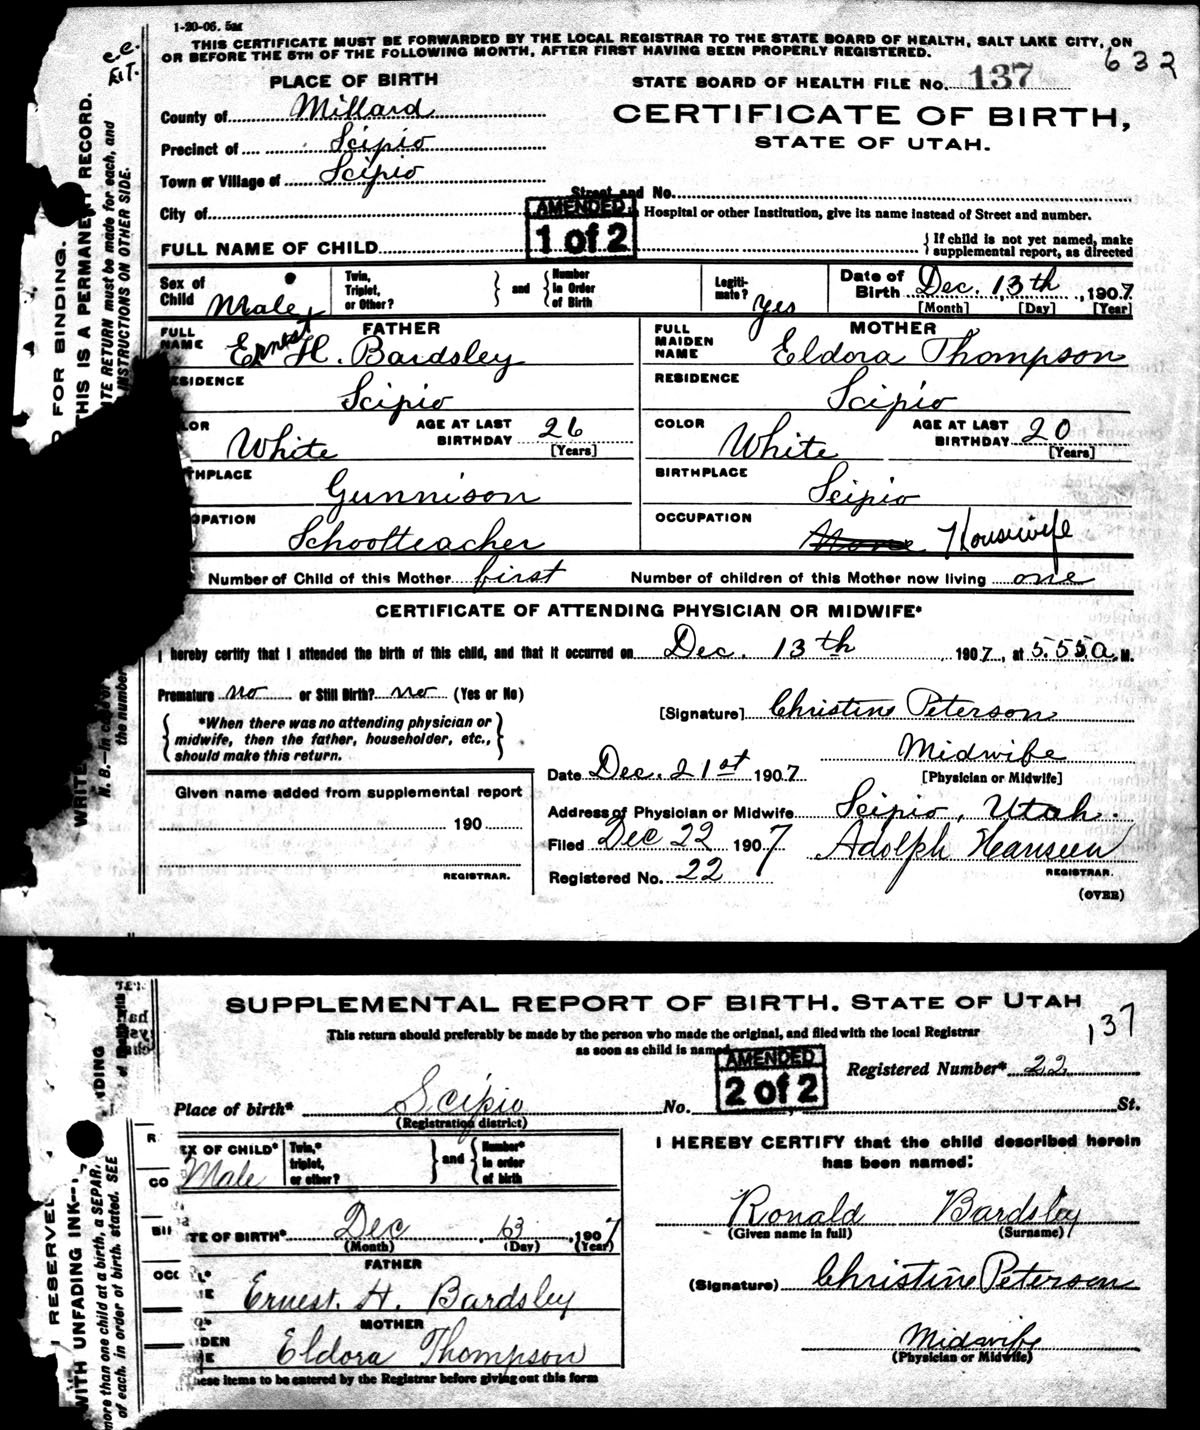 1-20-06. 5M
THIS CERTIFICATE MUST BE FORWARDED BY THE LOCAL REGISTRAR TO THE STATE BOARD OF HEALTH, SALT LAKE CITY, ON
OR BEFORE THE 5TH OF THE FOLLOWING MONTH, AFTER FIRST HAVING BEEN PROPERLY REGISTERED.
632
PLACE OF BIRTH
STATE BOARD OF HEALTH FILE No. 137
County of Millard
CERTIFICATE OF BIRTH,
Precinct of Scipio
STATE OF UTAH.
Town or Village of Scipio
Street and No.
City of
AMENDED
1 of 2
Hospital or other Institution, give its name instead of Street and number.
FULL NAME OF CHILD
If child is not yet named, make
supplemental report, as directed
Sex of Child Male
Twin, Triplet, or Other?
and
Number in Order of Birth
Legitimate? Yes
Date of Birth Dec. 13th, 1907
[Month] [Day] [Year]
FATHER
FULL NAME Ernest H. Bardsley
MOTHER
FULL MAIDEN NAME Eldora Thompson
RESIDENCE Scipio
RESIDENCE Scipio
LOR White AGE AT LAST BIRTHDAY 26 [Years]
COLOR White AGE AT LAST BIRTHDAY 20 [Years]
THPLACE Gunnison
BIRTHPLACE Scipio
PATION Schoolteacher
OCCUPATION None Housewife
Number of Child of this Mother first Number of children of this Mother now living one
CERTIFICATE OF ATTENDING PHYSICIAN OR MIDWIFE*
I hereby certify that I attended the birth of this child, and that it occurred on Dec. 13th, 1907, at 5.55 a. M.
Premature no or Still Birth? no (Yes or No)
*When there was no attending physician or
midwife, then the father, householder, etc.,
should make this return.
[Signature] Christine Peterson
Midwife
[Physician or Midwife]
Date Dec. 21st 1907
Given name added from supplemental report
190
REGISTRAR.
Address of Physician or Midwife Scipio, Utah.
Filed Dec 22 1907 Adolph Hanseen
REGISTRAR.
Registered No. 22
(OVER)
FOR BINDING.
THIS IS A PERMANENT RECORD.
TE RETURN must be made for each, and
INSTRUCTIONS ON OTHER SIDE.
WRITE
N. B.—In case of
the number
SUPPLEMENTAL REPORT OF BIRTH. STATE OF UTAH
137
This return should preferably be made by the person who made the original, and filed with the local Registrar
as soon as child is named
AMENDED
2 of 2
Registered Number* 22
Place of birth* Scipio No. St.
(Registration district)
EX OF CHILD* Male
Twin,* triplet, or other?
and
Number* in order of birth
I HEREBY CERTIFY that the child described herein
has been named:
TE OF BIRTH* Dec 13, 1907
(Month) (Day) (Year)
Ronald Bardsley
(Given name in full) (Surname)
FATHER
Ernest. H. Bardsley
(Signature) Christine Peterson
MOTHER
Eldora Thompson
Midwife
(Physician or Midwife)
hese items to be entered by the Registrar before giving out this form
RESERVE
WITH UNFADING INK
more than one child at a birth, a SEPAR
of each, in order of birth, stated. SEE